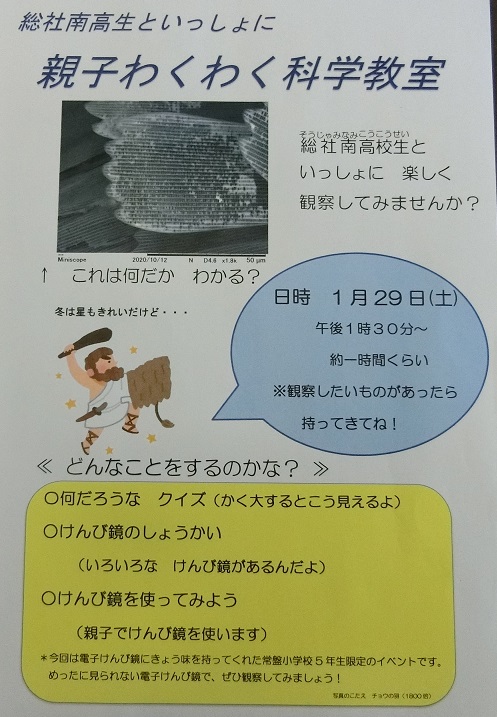 総社南高生といっしょに
親子わくわく科学教室
そうじゃみなみこうこうせい
総社南高校生と
いっしょに 楽しく
観察してみませんか？
Miniscope 2020/10/12 N D4.6 x1.8k 50 μm
↑ これは何だか わかる？
日時 1月29日(土)
午後1時30分～
約一時間くらい
※観察したいものがあったら
持ってきてね！
冬は星もきれいだけど・・・
≪ どんなことをするのかな？ ≫
○何だろうな クイズ（かく大するとこう見えるよ）
○けんび鏡のしょうかい
（いろいろな けんび鏡があるんだよ）
○けんび鏡を使ってみよう
（親子でけんび鏡を使います）
＊今回は電子けんび鏡にきょう味を持ってくれた常盤小学校5年生限定のイベントです。
めったに見られない電子けんび鏡で、ぜひ観察してみましょう！
写真のこたえ チョウの羽（1800倍）